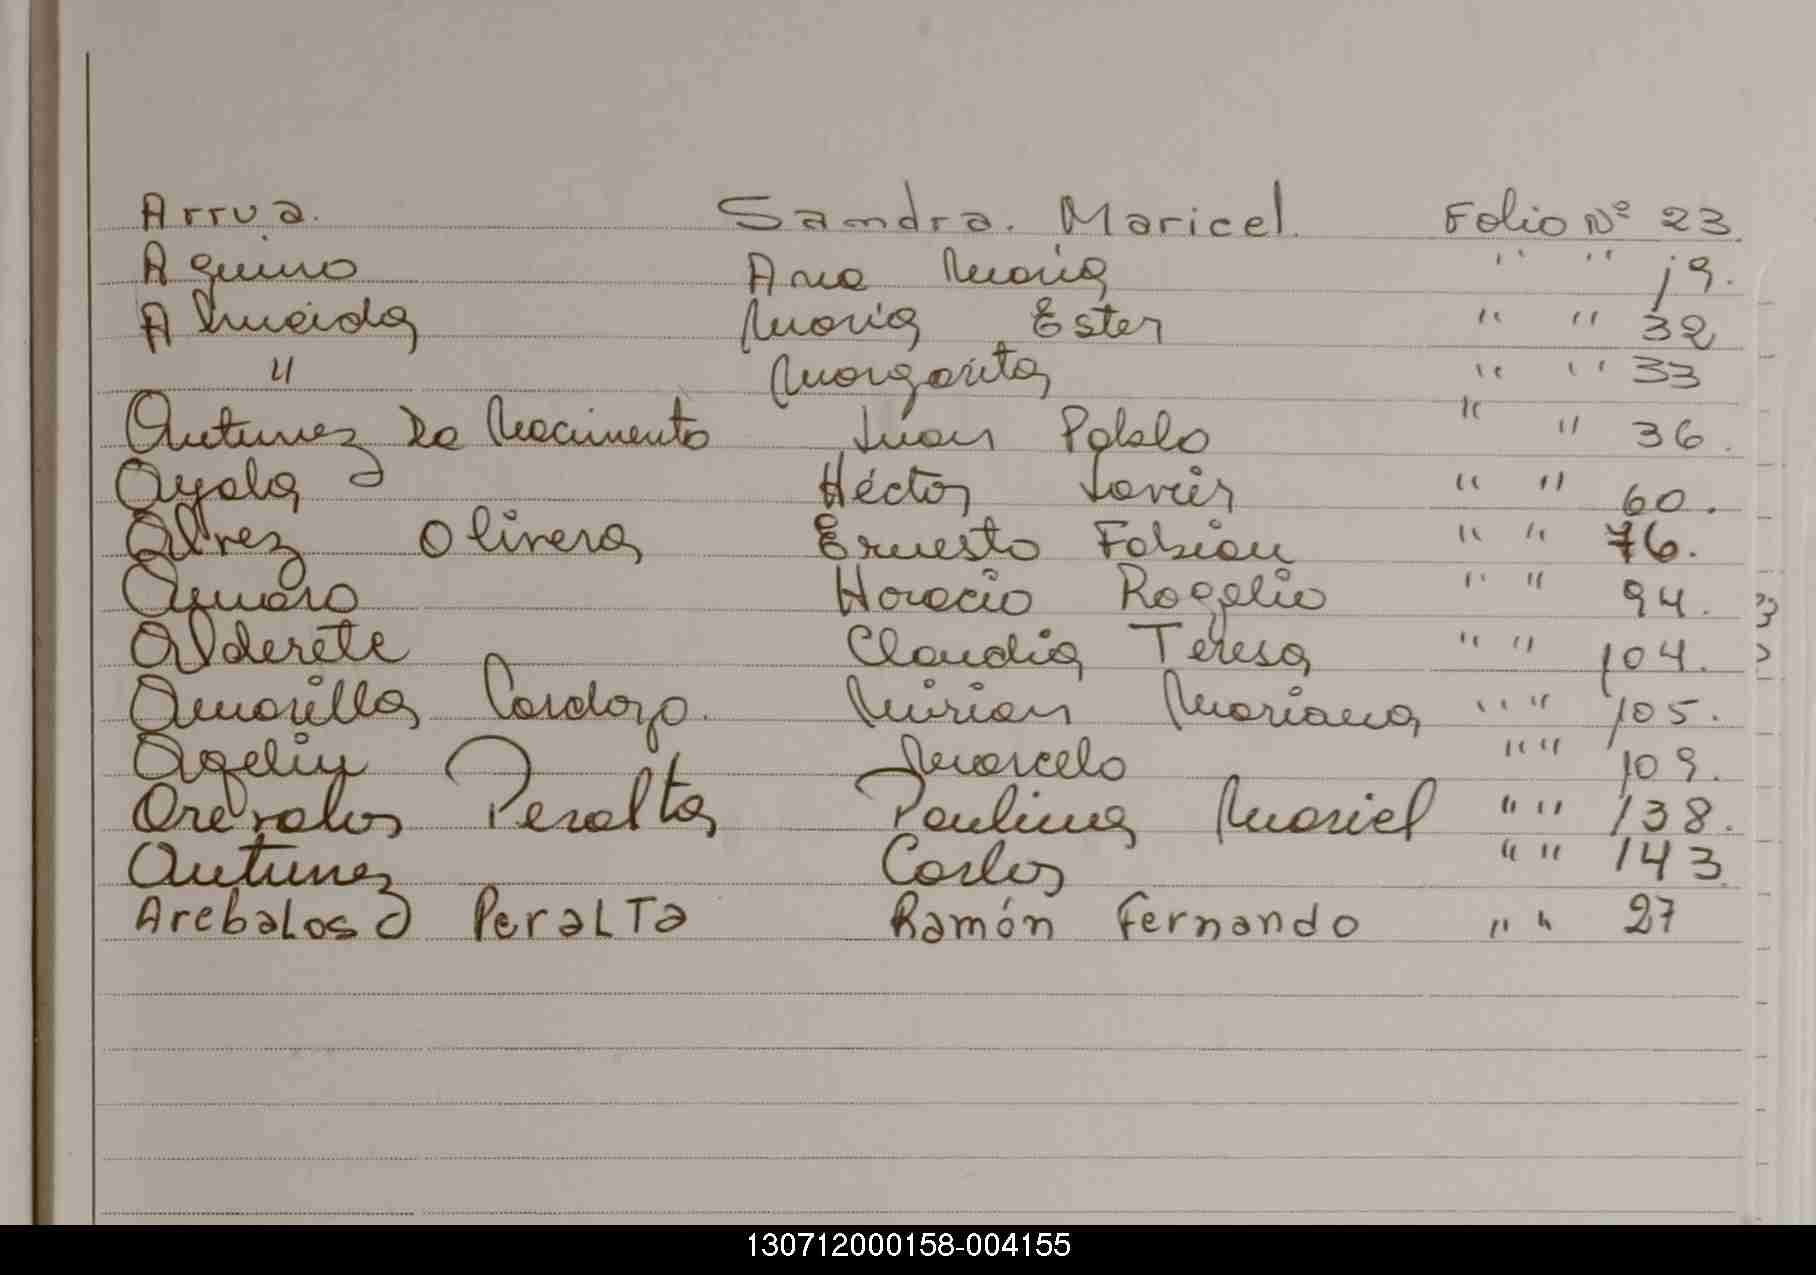 Arrua. Sandra. Maricel. Folio Nº 23.
Aquino Ana María " " 19.
Almeida María Ester " " 32
" Margarita " " 33
Antunez Do Nacimento Juan Pablo " " 36.
Ayala Héctor Javier " " 60.
Alvez Olivera Ernesto Fabian " " 76.
Horacio Rogelio " " 94.
Alderete Claudia Teresa " " 104.
Amarilla Cardozo. Mirian Mariana " " 105.
Marcelo " " 109.
Arevalos Peralta Paulina Mariel " " 138.
Antunez Carlos " " 143.
Arebalos Peralta Ramón Fernando " " 27
130712000158-004155